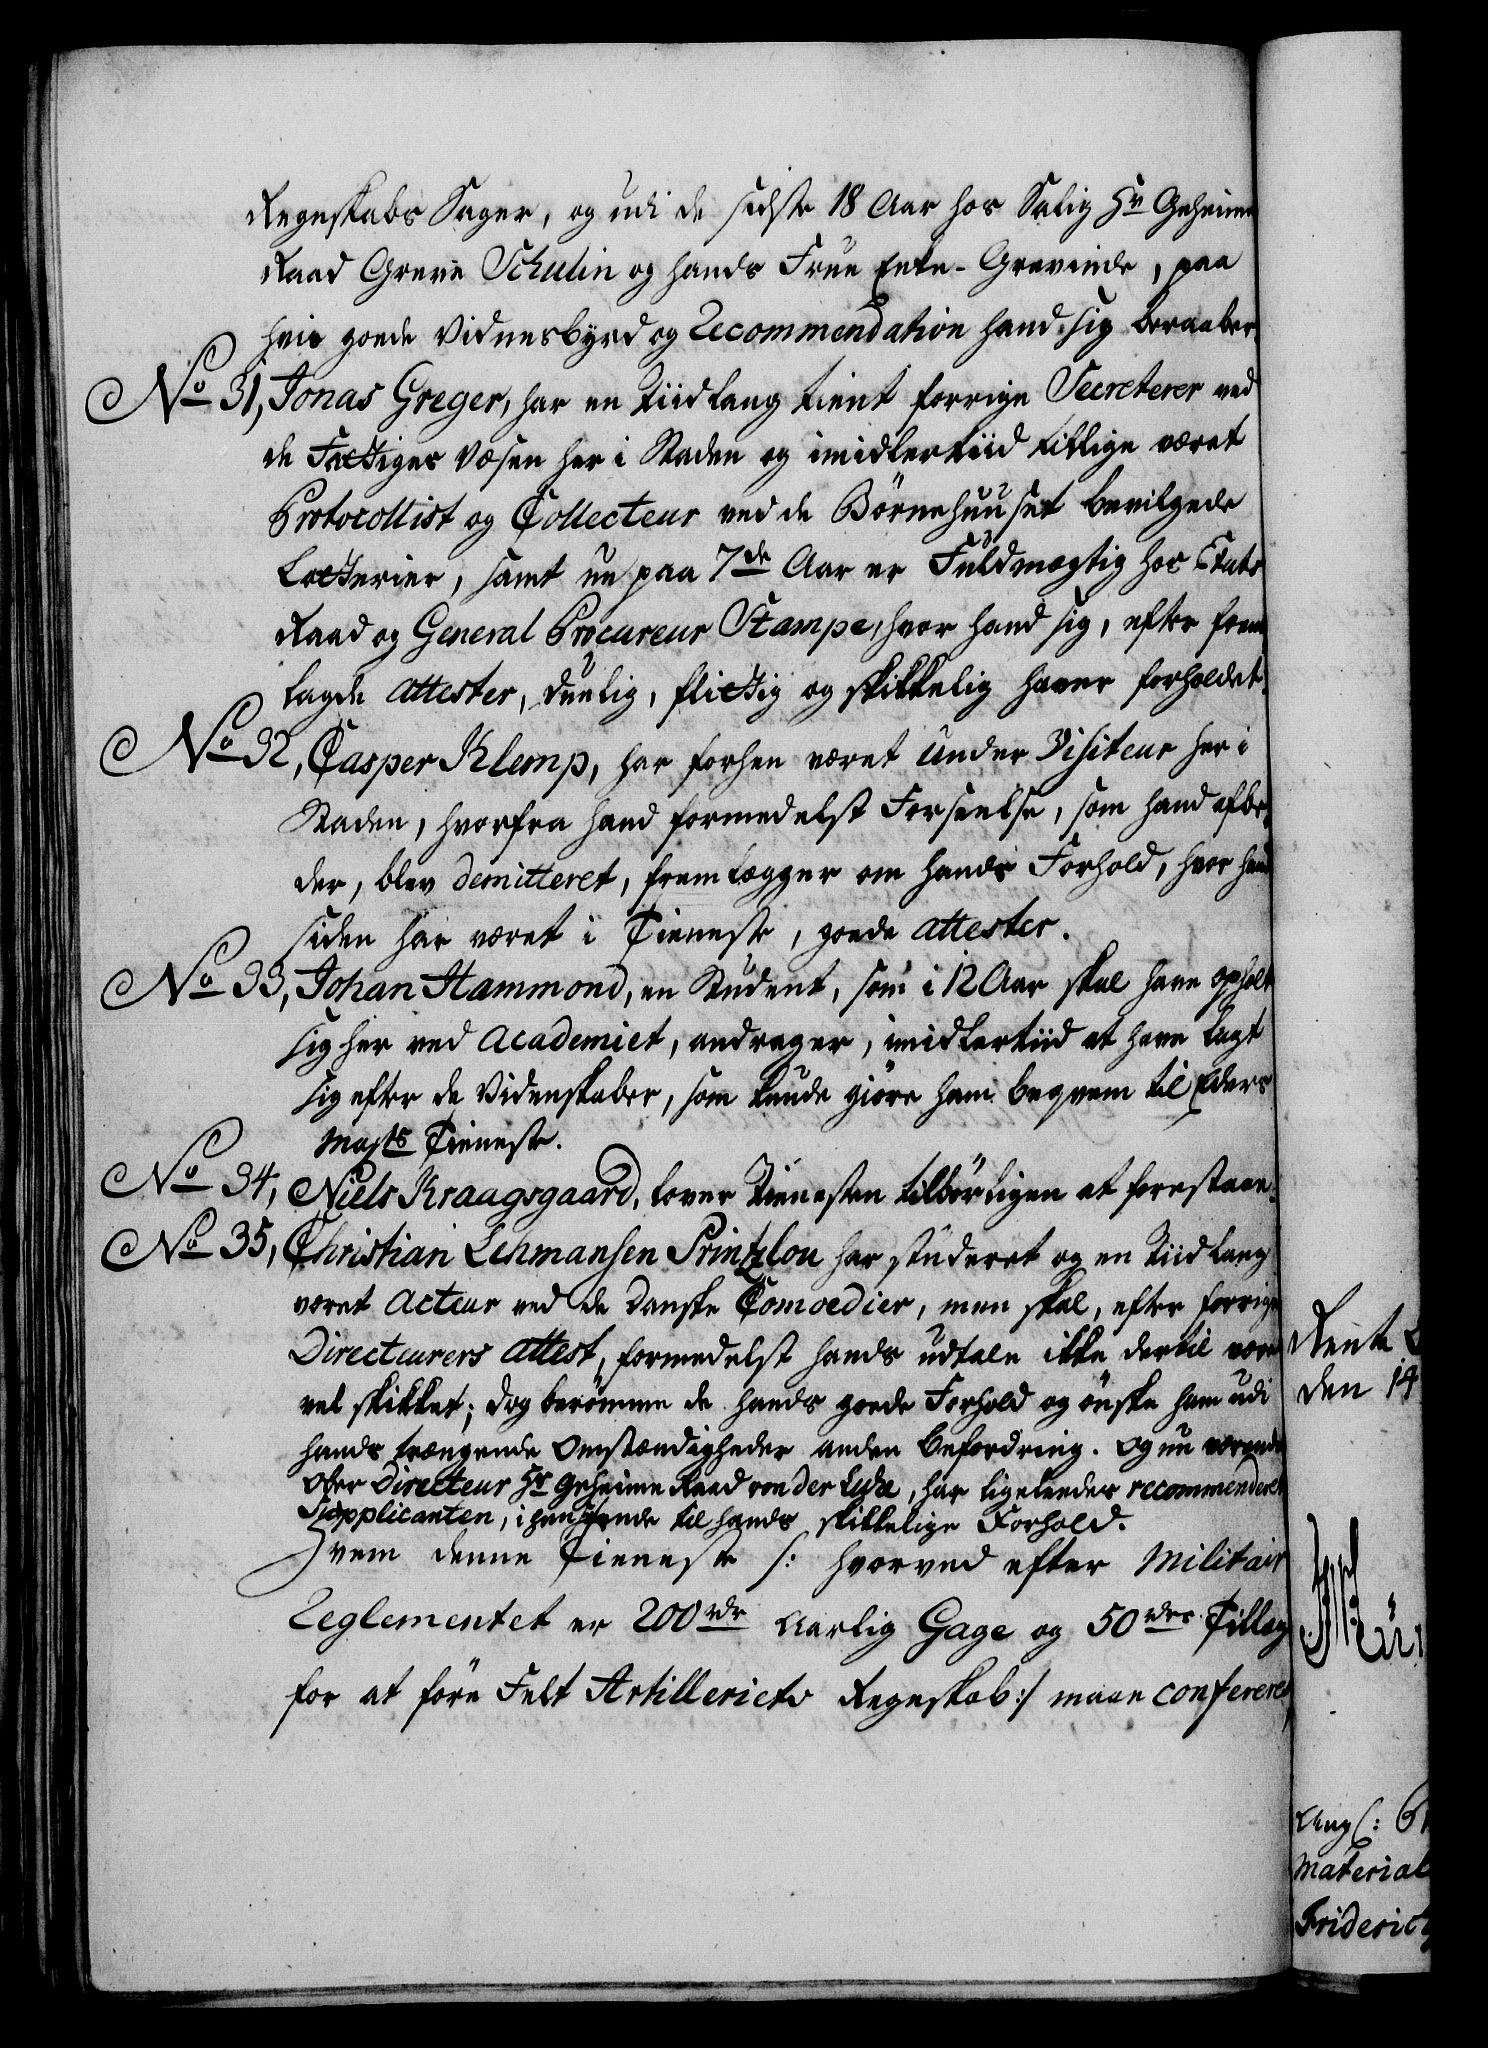 Regnskabs Sager, og udi de sidste 18 Aar hos Salig Hr Geheime
Raad Greve Schulin og hands Frue Enke-Grevinde, paa
hvis goede Vidnesbyrd og Recommendation hand sig beraaber.
No 31, Jonas Greger, har en Tiid lang tient forrige Secreterer ved
de Fattiges Væsen her i Staden og imidlertiid tillige været
Protocollist og Collecteur ved de Börnehuuset bevilgede
Lotterier, samt nu paa 7de Aar er Fuldmægtig hos Etats
Raad og General Procureur Stampe, hvor hand sig, efter frem
lagde attester, duelig, flittig og skikkelig haver forholdet.
No 32, Casper Klemp, har forhen været Under Visiteur her i
Staden, hvorfra hand formedelst Forseelse, som hand afbe
der, blev demitteret, fremlægger om hands Forhold, hvor hand
siden har været i Tieneste, goede attester.
No 33, Johan Hammond, en Student, som i 12 Aar skal have opholt
sig her ved Academiet, andrager, imidlertiid at have lagt
sig efter de Videnskaber, som kunde giöre ham beqvem til Eders
Majts Tieneste.
No 34, Niels Kraagsgaard, lover Tienesten tilbörligen at forestaae.
No 35, Christian Lehmansen Printzlou har studeret og en Tiid lang
været Acteur ved de danske Comoedier, men skal, efter forrige
Directeurers attest, formedelst hands udtale ikke dertil være
vel skikket; dog berömme de hands goede Forhold og önske ham udi
hands trængende Omstændigheder anden befordring. Og nu værende
Ober Directeur Hr Geheime Raad von der Lühe, har ligeleedes recommenderet
Supplicanten, i henseende til hands skikkelige Forhold.
Hvem denne Tieneste /: hvorved efter Militair
Reglementet er 200 rdr aarlig Gage og 50 rdrs Tillæg
for at före Felt Artilleriets Regnskab :/ maae confereres,
Rente
den 14
Ang(:
Material
Friderich